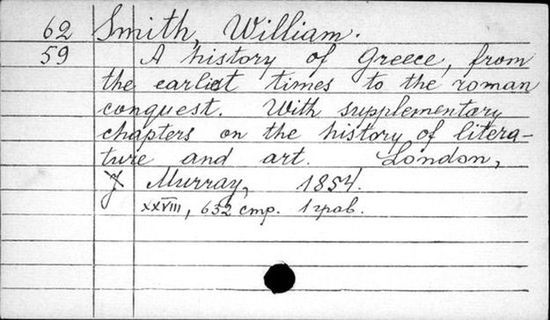 62 Smith, William.
59 A history of Greece, from
the earliest times to the roman
conquest. With supplementary
chapters on the history of litera-
ture and art. London,
J Murray, 1854.
XXVIII, 632 стр. 1 грав.